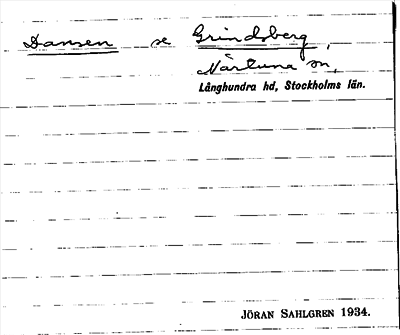 Dansen se Grindsberg,
Närtuna sn,
Långhundra hd, Stockholms län.
JÖRAN SAHLGREN 1934.